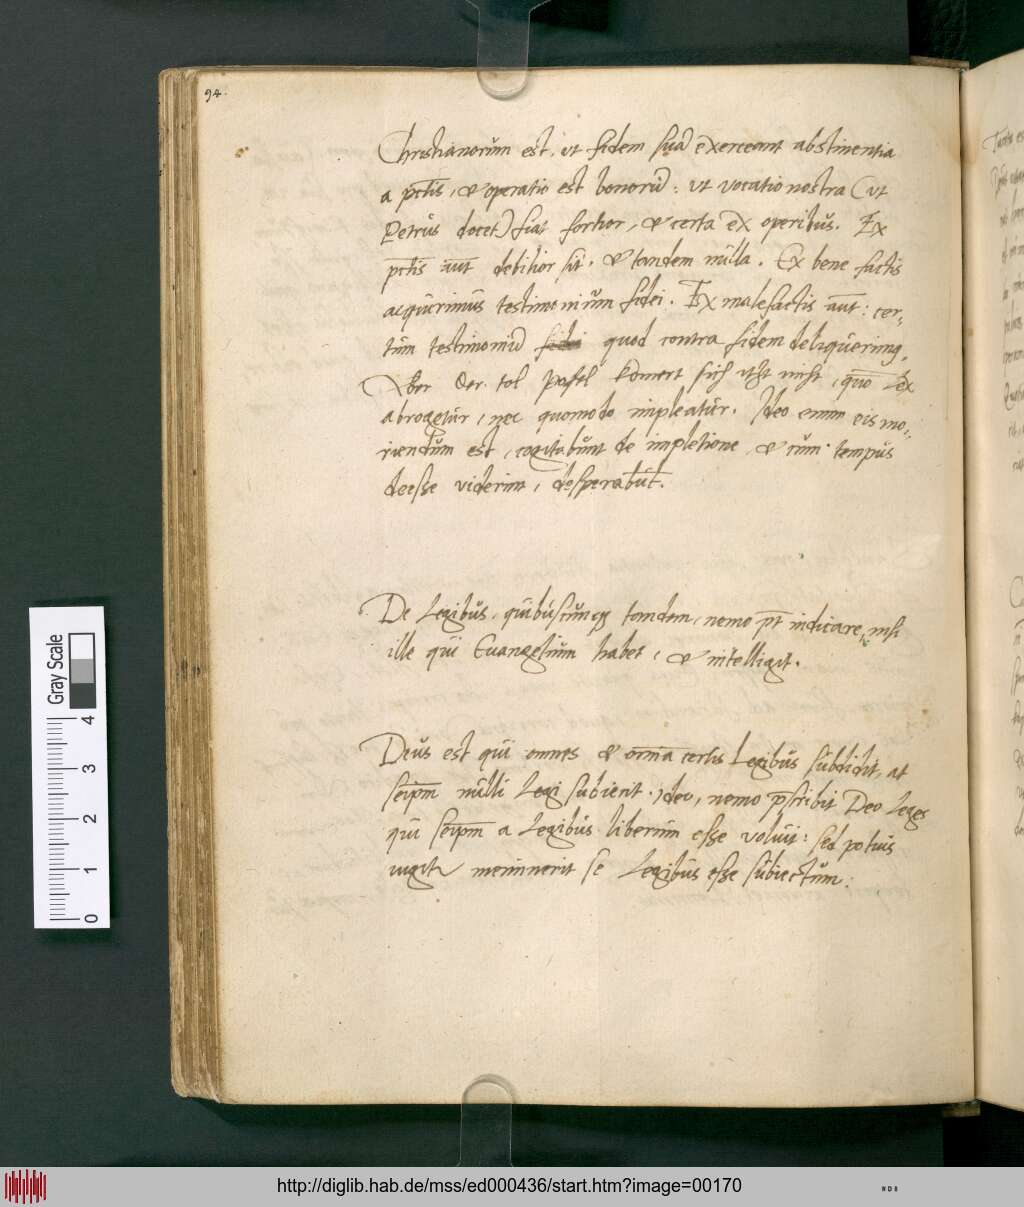 94.
Christianorum est, ut fidem suã exerceant abstinentia
a pctis, & operatio est bonorũ: ut vocatio nostra (ut
Petrus docet) fiat fortior, & certa ex operibus. Ex
pctis aut debilior fit, & tandem nulla. Ex bene factis
acquirimus testimonium fidei. Ex malefactis aut: cer,
tum testimoniũ quod contra fidem deliquerimus,
Aber der tol pofel, quo Lex
abrogetur, nec quomodo impleatur. Ideo enim eis mo,,
riendum est, cogitabunt de impletione, & cum tempus
deesse viderint, desperabũt.
De Legibus, quibuscunq tandem, nemo pt iudicare, nisi
ille qui Euangelium habet, & intelligit.
Deus est qui omnes & omnia certis Legibus subdidit, at
seipm nulli Legi subiecit. Ideo, nemo pscribit Deo Leges
qui seipm a Legibus liberum esse voluit: sed potius
iugiter meminerit se Legibus esse subiectum:
Gray Scale
0 1 2 3 4
http://diglib.hab.de/mss/ed000436/start.htm?image=00170